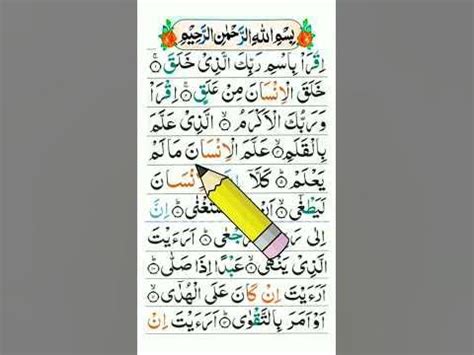 بِسْمِ اللهِ الرَّحْمٰنِ الرَّحِيْمِ
اِقْرَاْ بِاسْمِ رَبِّكَ الَّذِيْ خَلَقَ ۝١
خَلَقَ الْاِنْسَانَ مِنْ عَلَقٍ ۝٢ اِقْرَاْ
وَرَبُّكَ الْاَكْرَمُ ۝٣ الَّذِيْ عَلَّمَ
بِالْقَلَمِ ۝٤ عَلَّمَ الْاِنْسَانَ مَالَمْ
يَعْلَمْ ۝٥ كَلَّاۤ
لَيَطْغٰۤى ۝٦ اِنَّ
اِلٰى
الَّذِيْ يَنْهٰى ۝٩ عَبْدًا اِذَا صَلّٰى ۝١٠
اَرَءَيْتَ اِنْ كَانَ عَلَى الْهُدٰۤى ۝١١
اَوْ اَمَرَ بِالتَّقْوٰى ۝١٢ اَرَءَيْتَ اِنْ